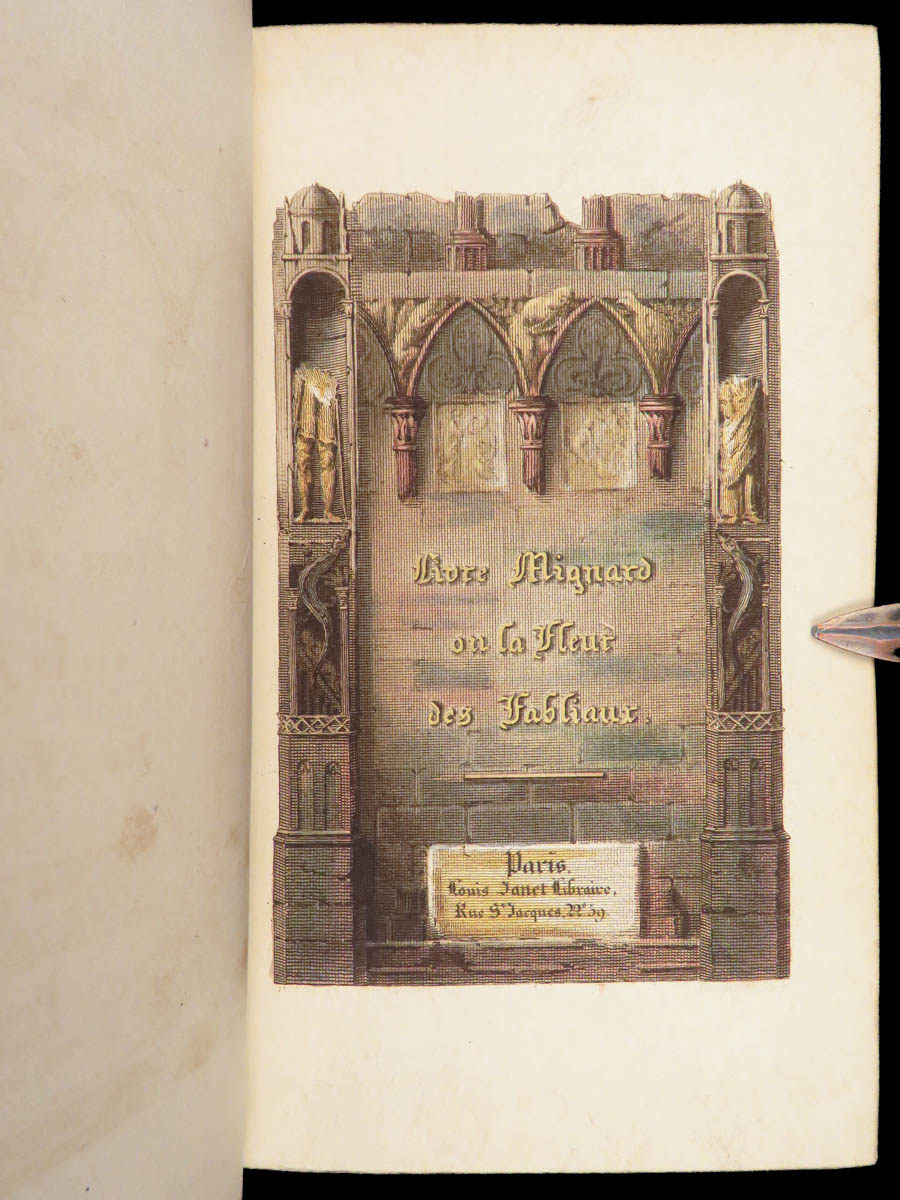 Livre Mignard
ou la Fleur
des Fabliaux.
Paris,
Louis Janet Libraire,
Rue St. Jacques, No. 59